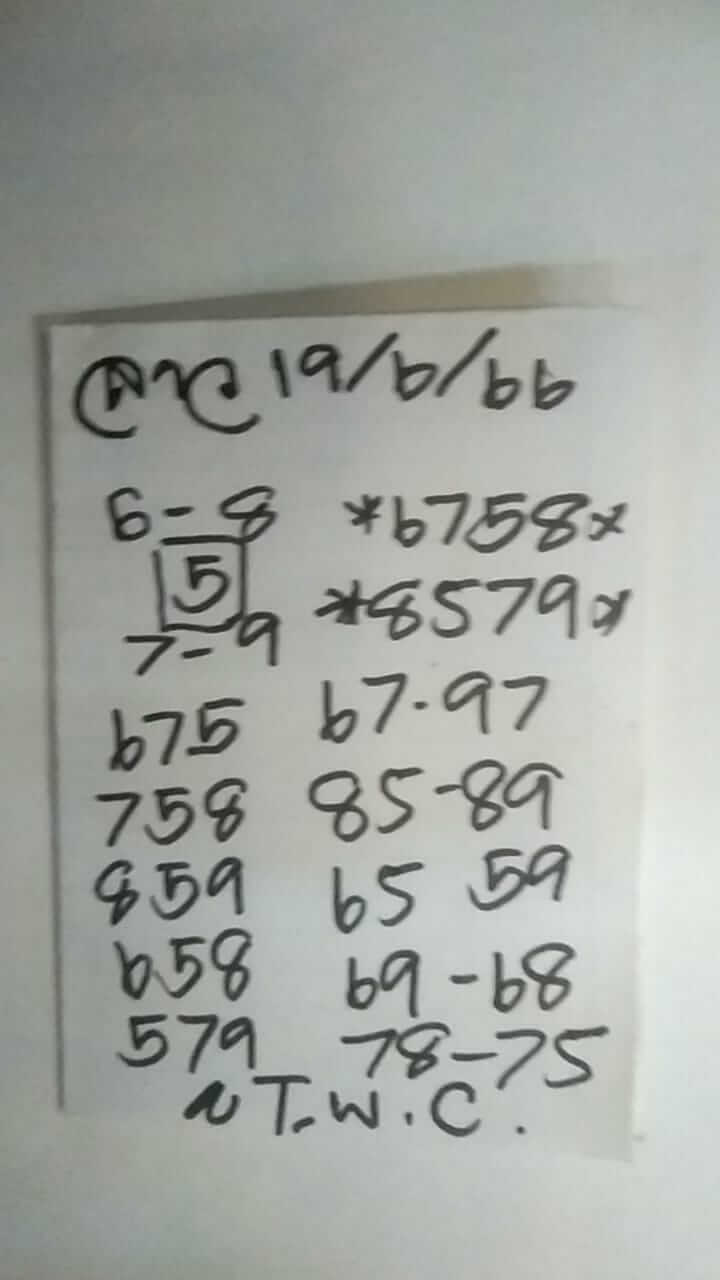 ลาว 19/6/66
6-8 *6758*
5
7-9 *8579*
675 67-97
758 85-89
859 65 59
658 69-68
579 78-75
~T.W.C.